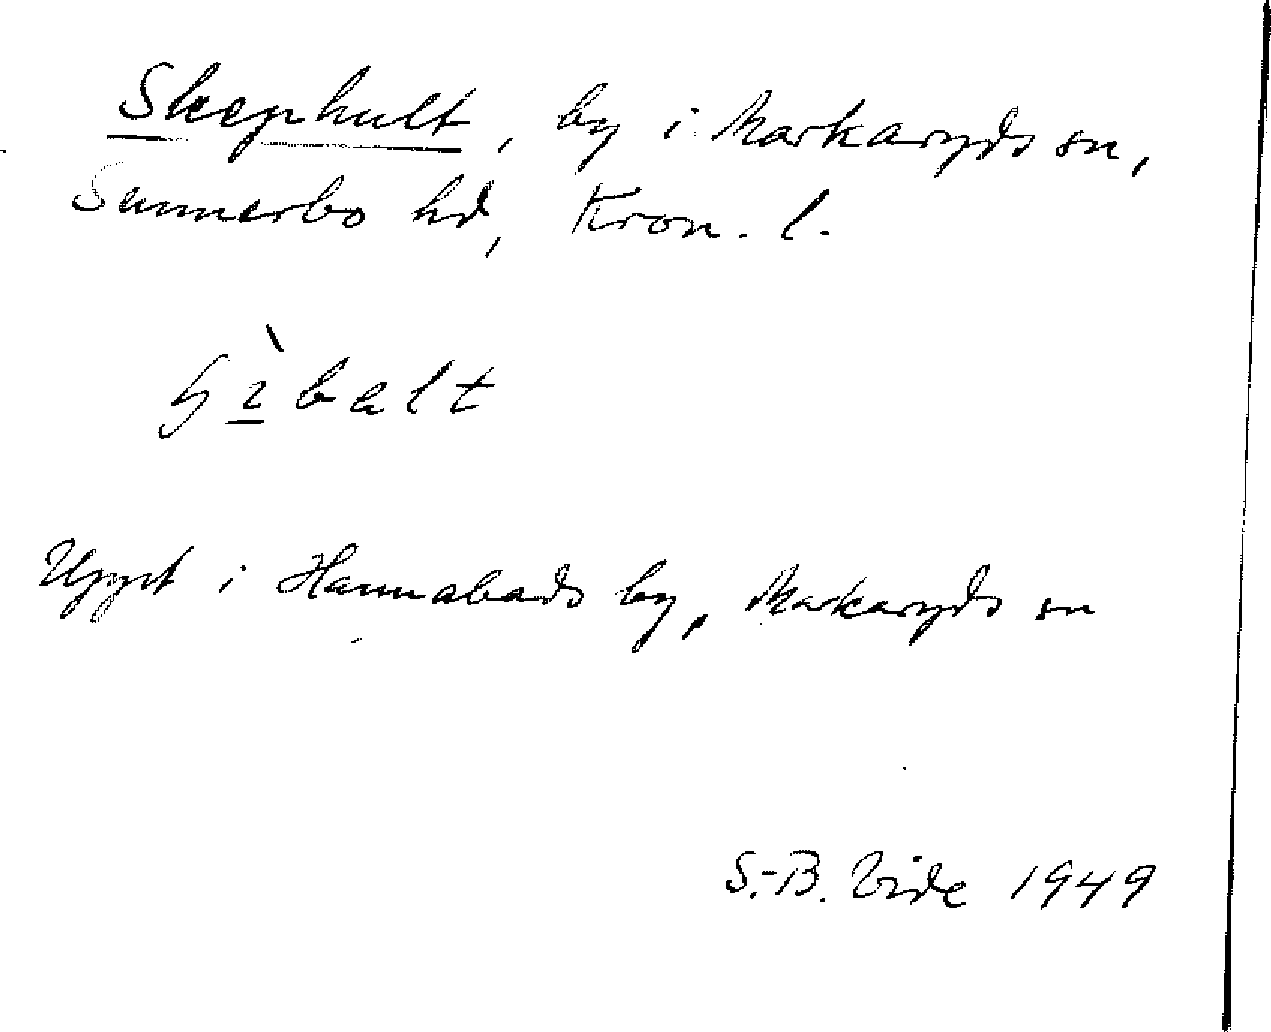 Skephult, by i Markaryds sn,
Sunnerbo hd, Kron. l.
Uppt i Hannabads by, Markaryds sn
S.-B. Vide 1949